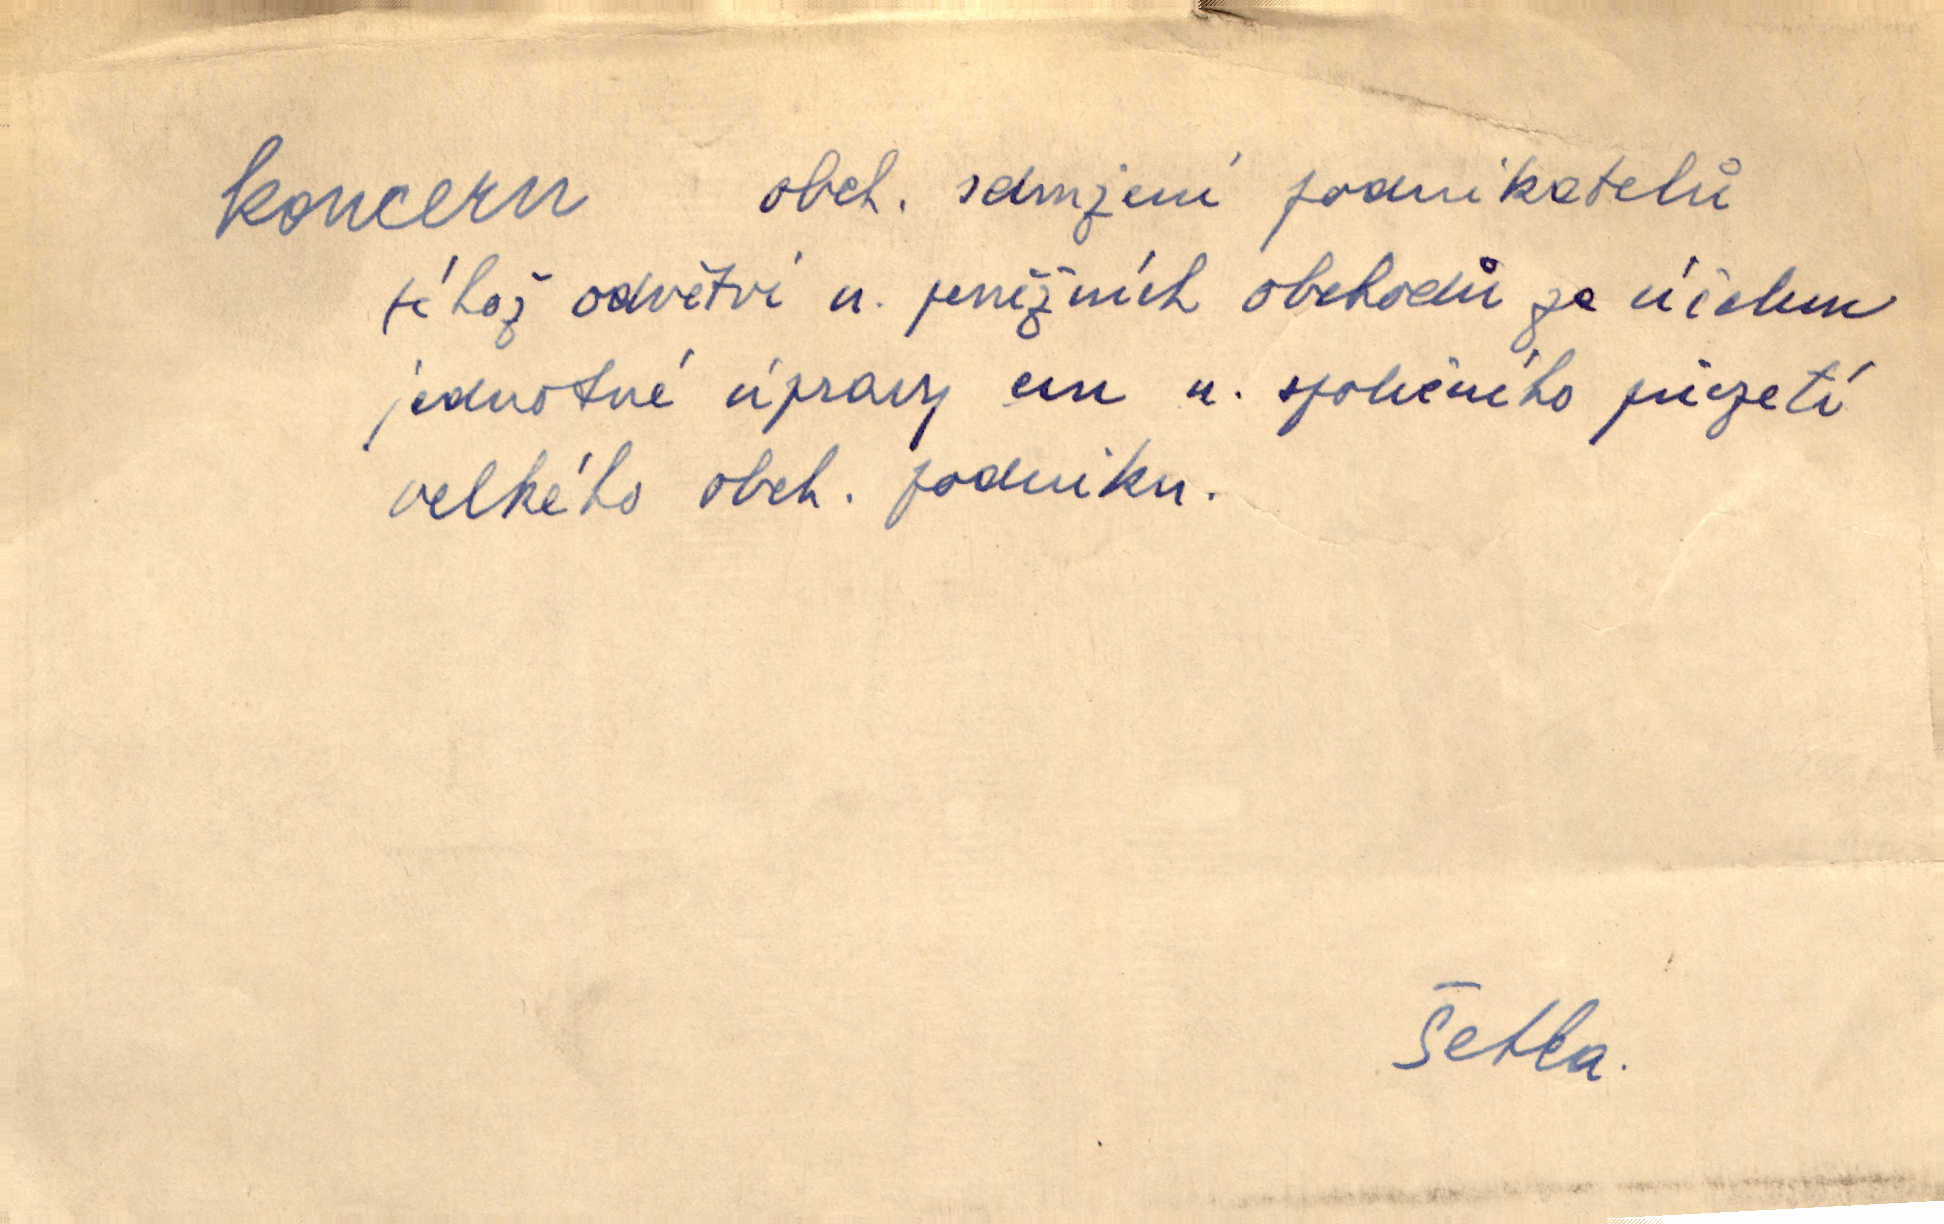 koncern obch. sdružení podnikatelů
téhož odvětví n. peněžních obchodů za účelem
jednotné úpravy cen n. společného převzetí
velkého obch. podniku.
Šetka.